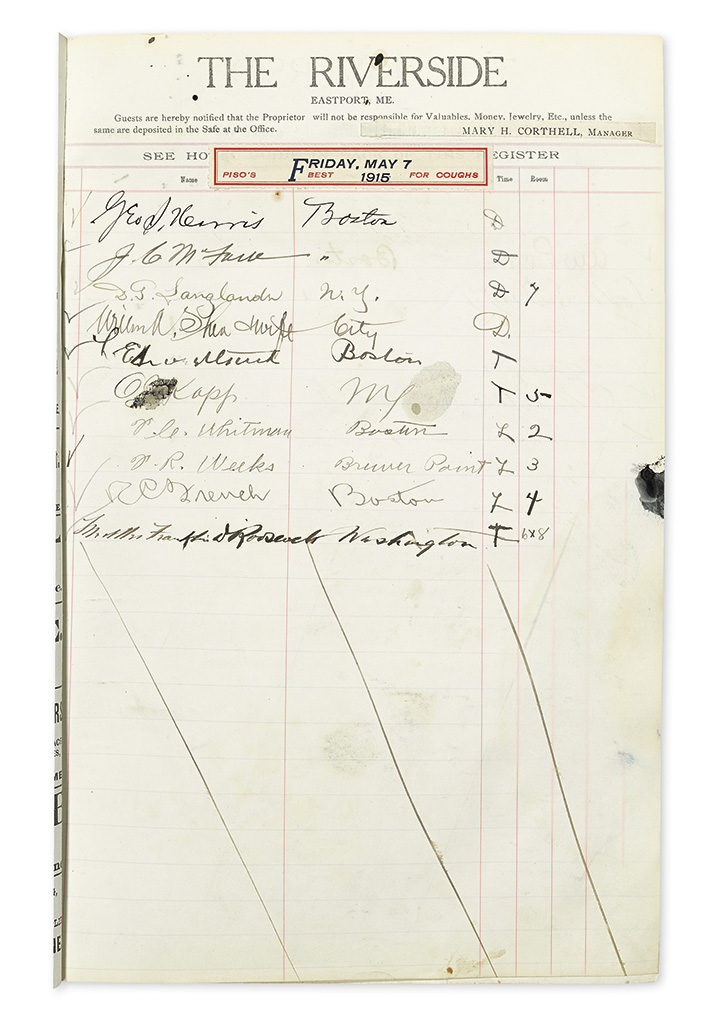 THE RIVERSIDE
EASTPORT, ME.
Guests are hereby notified that the Proprietor will not be responsible for Valuables, Money, Jewelry, Etc., unless the
same are deposited in the Safe at the Office.
MARY H. CORTHELL, MANAGER
SEE HO EGISTER
FRIDAY, MAY 7
PISO'S BEST 1915 FOR COUGHS
Name Time Room
Geo Harris Boston D
J. C. Mc " D
D. Langlands N. Y. D 7
Shea & wife City D.
Boston T
Kapp T 5
Whitman Boston L 2
R. Weeks Brewer Point L 3
R C French Boston L 4
Mr & Mrs Franklin D Roosevelt Washington T 6 & 8